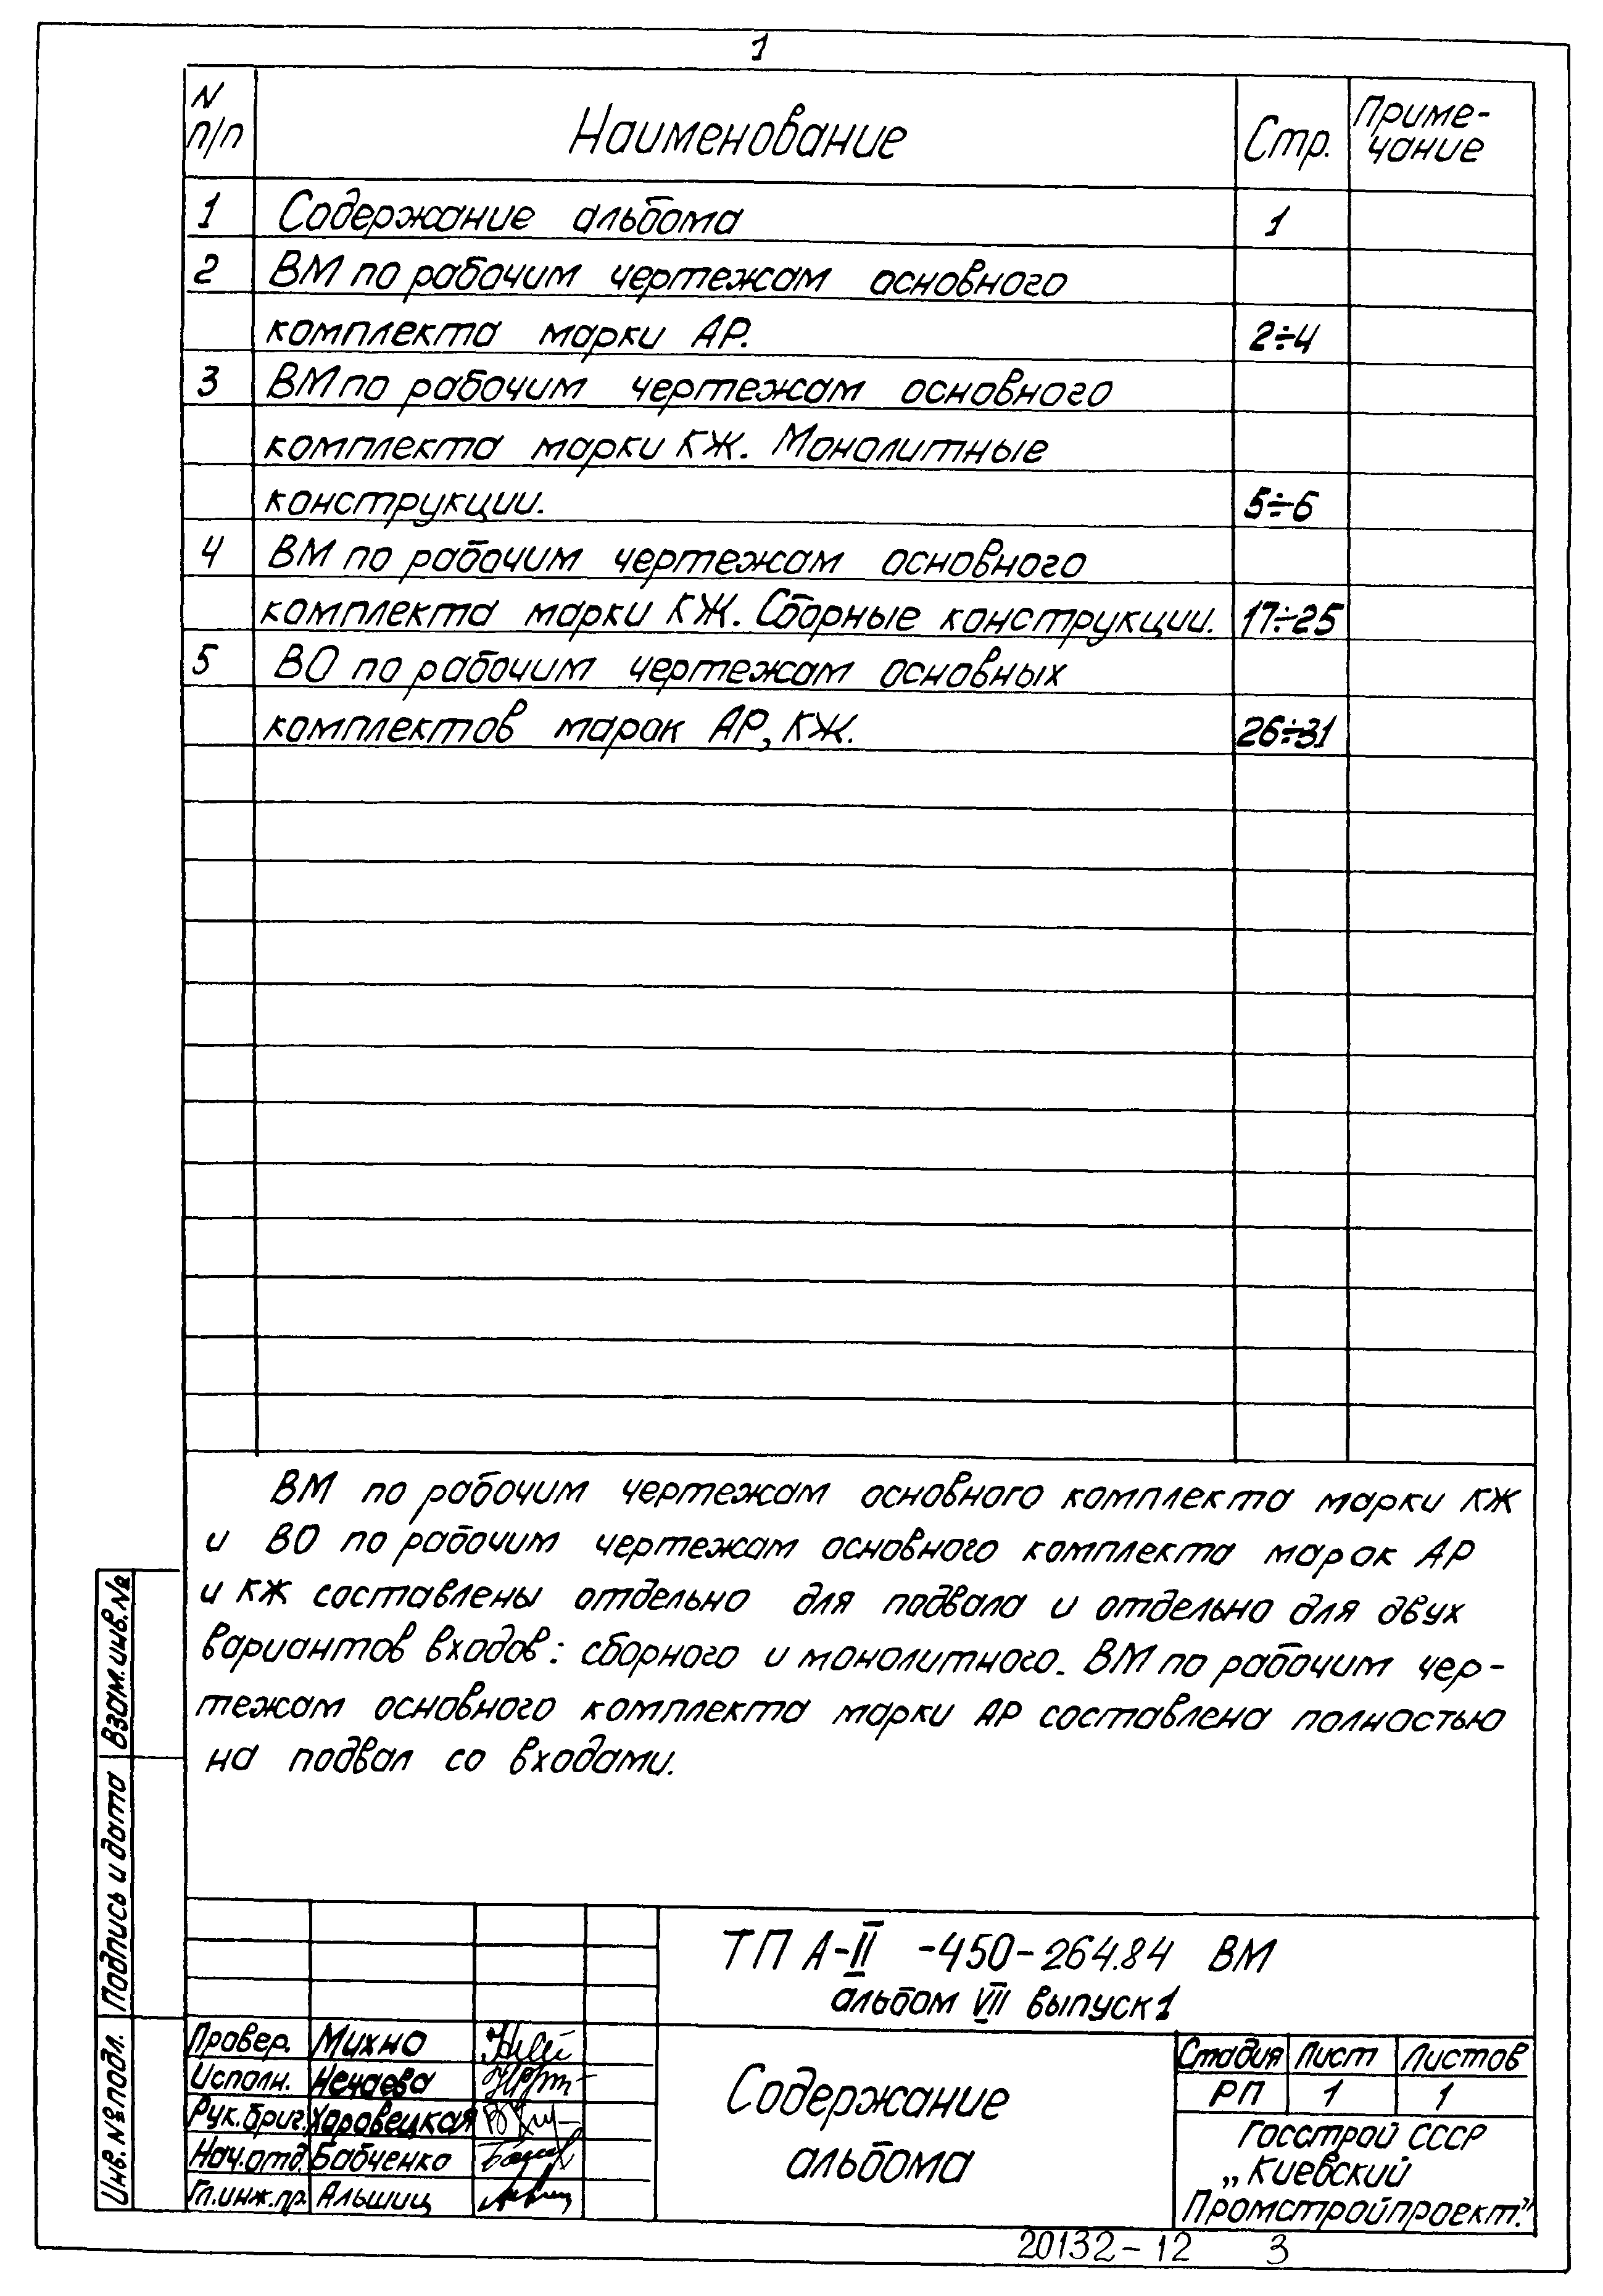 1
N п/п Наименование Стр. Приме-
чание
1 Содержание альбома 1
2 ВМ по рабочим чертежам основного
комплекта марки АР. 2÷4
3 ВМ по рабочим чертежам основного
комплекта марки КЖ. Монолитные
конструкции. 5÷6
4 ВМ по рабочим чертежам основного
комплекта марки КЖ. Сборные конструкции. 17÷25
5 ВО по рабочим чертежам основных
комплектов марок АР, КЖ. 26÷31
ВМ по рабочим чертежам основного комплекта марки КЖ
и ВО по рабочим чертежам основного комплекта марок АР
и КЖ составлены отдельно для подвала и отдельно для двух
вариантов входов: сборного и монолитного. ВМ по рабочим чер-
тежам основного комплекта марки АР составлена полностью
на подвал со входами.
Взам.инв.№
Подпись и дата
Инв.№подл.
ТП А-II -450-264.84 ВМ
альбом VII выпуск 1
Провер. Михно
Исполн. Нечаева
Рук.бриг. Харовецкая
Нач.отд. Бабченко
Гл.инж.пр. Альшиц
Содержание
альбома
Стадия Лист Листов
РП 1 1
Госстрой СССР
„Киевский
Промстройпроект."
20132-12 3